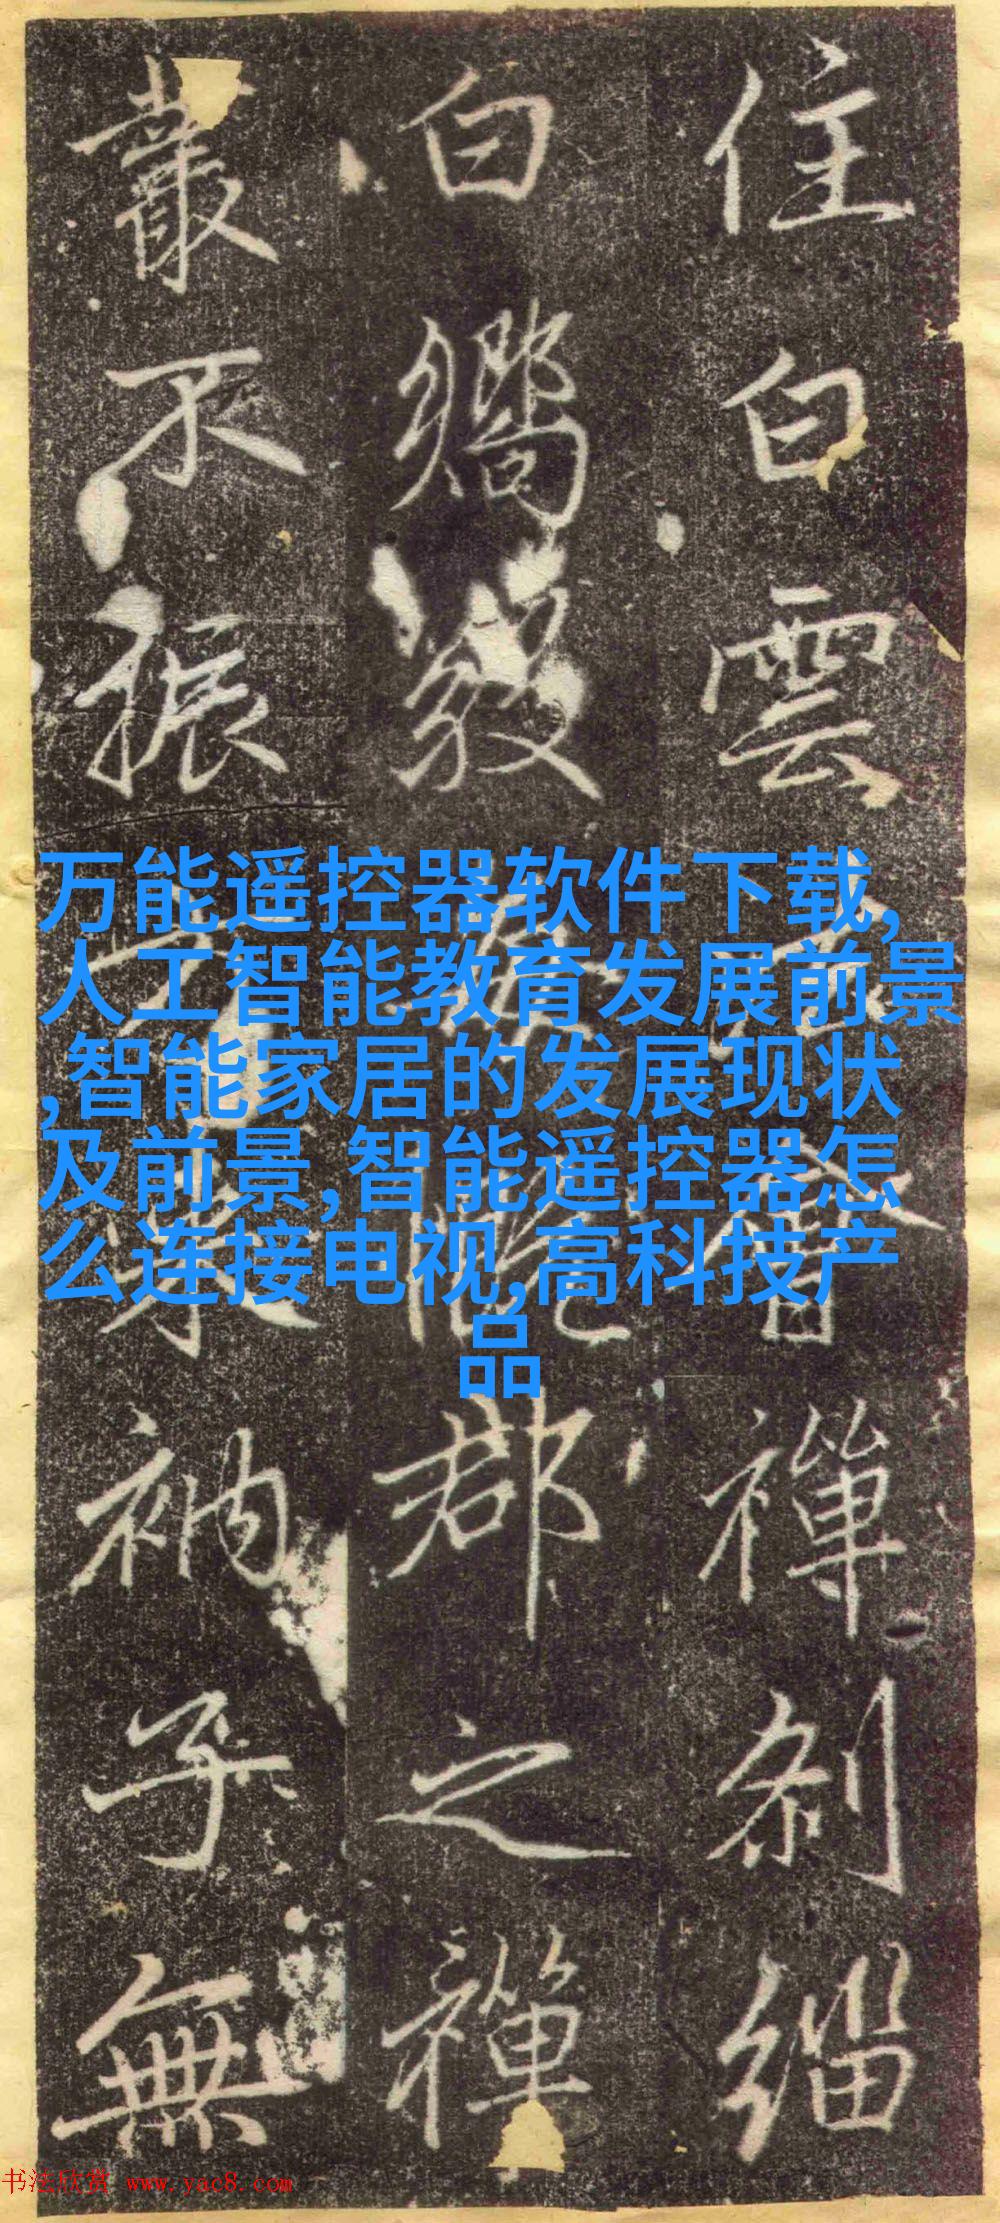 住白雲禪刹緇
白郡之禪
叢不振衲子無
万能遥控器软件下载,
人工智能教育发展前景
,智能家居的发展现状
及前景,智能遥控器怎
么连接电视,高科技产
品
书法欣赏 www.yac8.com